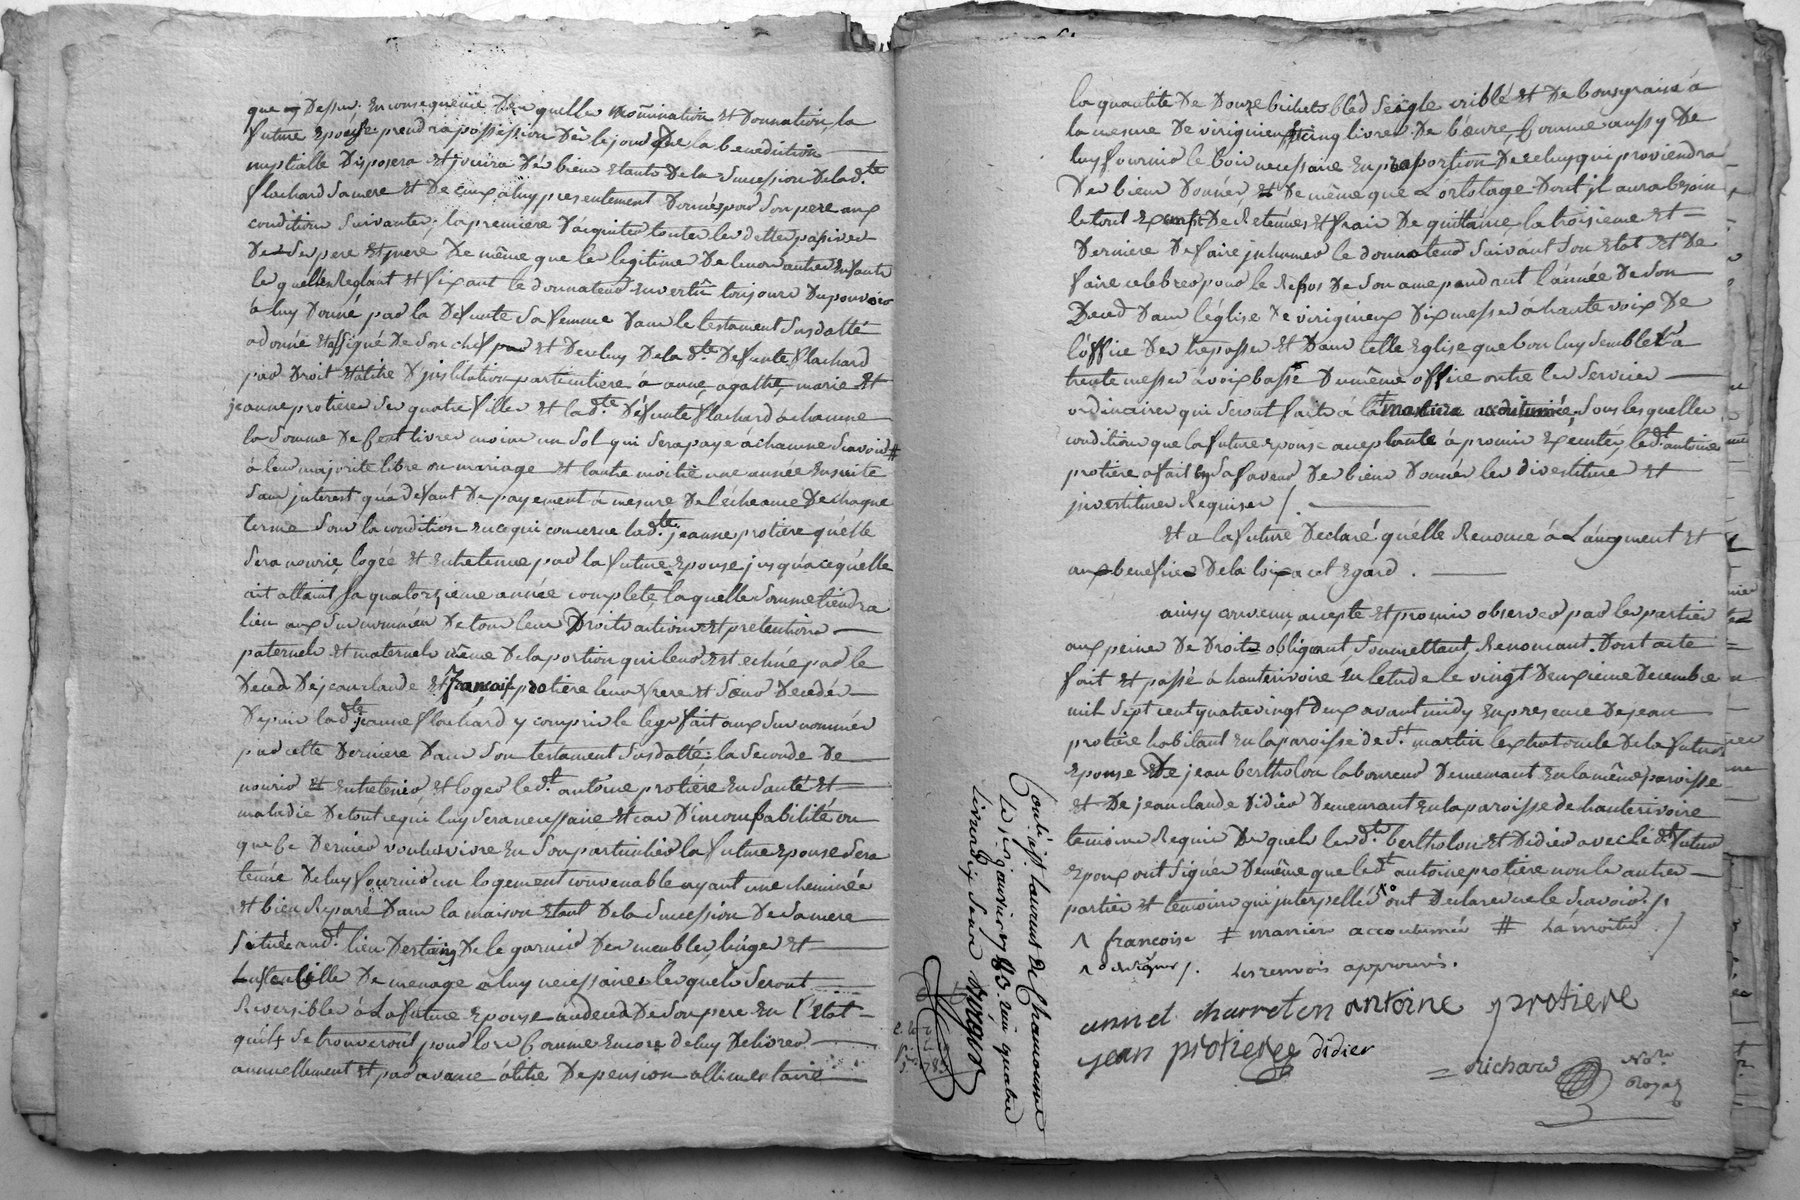 que dessus. En consequence de quelle nomination et donnation, la
future épouse prendra possession dès le jour de la benediction
nuptialle disposera et jouira des biens etants de la succession de lad.te
flachard sa mere et de ceux a luy presentement donnés par son pere aux
conditions suivantes; la premiere d'aquiter toutes les dettes passives
de ses pere et mere de même que les legitimes de leurs autres enfants
les quelles reglant et fixant le donnateur en vertû toujours du pouvoir
à luy donné par la defunte sa femme dans le testament susdatté
a donné et assigné de son chef et de celuy de la d.te defunte flachard
par droit et titre d'institution particuliere à anne, agathe, marie et
jeanne protiere ses quatre filles et lad.te défunte flachard à chacune
la somme de cent livres moins un sol qui sera payé à chacune scavoir #
à leur majorité libre ou mariage et l'autre moitié une année ensuite
sans interest qu'a defaut de payement à mesure de l'echeance de chaque
terme sous la condition en ce qui concerne lad.te jeanne protiere qu'elle
sera nourie, logée et entretenue par la future epouse jusqu'a ce qu'elle
ait attaint sa quatorzieme année complete, laquelle somme tiendra
lieu aux sus nommées de tous leurs droits actions et pretentions
paternels et maternels même de la portion qui leur est echûe par le
deced de jean claude et françois protiere leurs frere et soeur decedés
depuis lad.te jeanne flachard y compris le legs fait aux sus nommées
par cette derniere dans son testament susdatté: la seconde de
nourir et entretenir et loger led.t antoine protiére en santé et
maladie de tout ce qui luy sera necessaire et cas d'incompabilité ou
que ce dernier voulut vivre en son particulier la future epouse sera
tenüe de luy fournir un logement convenable ayant une cheminée
et bien reparé dans la maison etant de la succession de sa mere
située aud.t lieu de le garnir de meubles, linges et
ustencille de menage à luy necessaires lesquels seront
reversible à la future epouse au deced de son pere en l'état
qu'ils se trouveront pour lors comme encore de luy delivrer
annuellement et par avance à titre de pension allimentaire
la quantité de douze bichets bled seigle criblé et de bons grains à
la mesure de virigneux cinq livres de beure comme aussy de
luy fournir le bois necessaire en proportion de celuy qui proviendra
des biens donnés, et de même que l'ortolage dont il aura besoin
le tout exempt de retenues et frais de quittance, la troisieme et
derniere de faire inhumer le donnateur suivant son etat et de
faire celebrer pour le repos de son ame pendant l'année de son
deced dans l'église de virigneux dix messes à haute voix de
l'office des trepassés et dans telle eglise que bon luy semblera
trente messes à voix basse du même office outre les services
ordinaires qui seront faits à la maniere accoutumée, sous lesquelles
condition que la future epouse acceptante à promis executer, led.t antoine
protiere a fait en sa faveur des biens donnés les divestiture et
investitures requises /.
et a la future declaré qu'elle renonce à l'augment et
aux benefices de la loix a cet egard.
ainsy convenu accepté et promis observer par les parties
aux peines de droits obligeant soumettant, renoncant. Dont acte
fait et passé à hauterivoire en l'etude le vingt deuxieme decembre
mil sept cent quatre vingt deux avant midy en presence de jean
protiére habitant en la paroisse de S.t martin lestra oncle de la future
epouse de jean bertholon laboureur demeurant en la même paroisse
et de jean claude didier demeurant en la paroisse de hauterivoire
temoins requis desquels les d.ts bertholon et didier avec led.t futur
epoux ont signés de même que led.t antoine protiere non les autres
parties et temoins qui interpellés ^ ont declaré ne le scavoir /.
^ françoise ‡ maniere accoutumée # la moitié /
^ de signer /. les renvois approuvés.
annet charreton antoine protiere
jean protiere didier
Richard No.re Royal
Conlé à St laurent de Chamousset
le six janvier 1783. Reçu quatre
livres dix sous